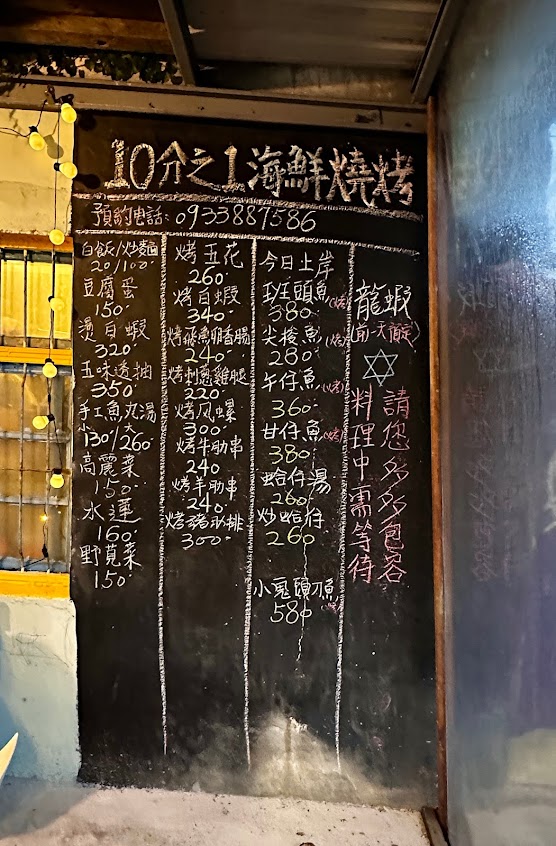 10分之1海鮮燒烤
預約電話:0933887586
白飯/炒麵
20/100
豆腐蛋
150
燙白蝦
320
五味透抽
350
手工魚丸湯
小130/大260
高麗菜
150
水蓮
160
野莧菜
150
烤五花
260
烤白蝦
340
烤飛魚卵香腸
240
烤刺蔥雞腿
220
烤風螺
300
烤牛肋串
240
烤羊肋串
240
烤豬肋排
300
今日上岸
班頭魚(烤)
380
尖梭魚(烤)
280
午仔魚(烤)
360
甘仔魚(烤)
380
蛤仔湯
260
炒蛤仔
260
小鬼頭刀魚
580
龍蝦
(前一天預定)
請您多多包容
料理中需等待